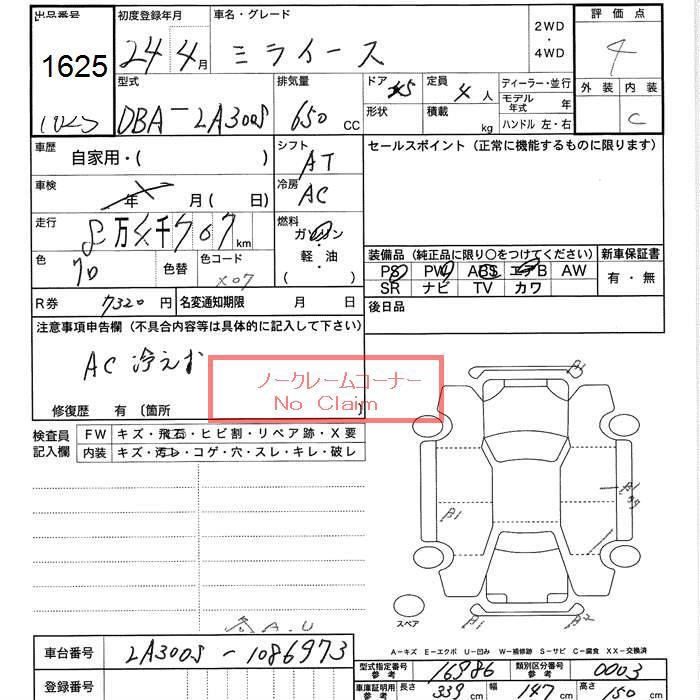 出品番号
1625
初度登録年月
24年4月
車名・グレード
ミライース
2WD
・
4WD
評価点
4
外装 内装
C
型式
DBA-LA300S
排気量
650 CC
ドア
5
形状
定員
4人
積載
kg
ディーラー・並行
モデル年式 年
ハンドル 左・右
車歴
自家用・( )
シフト
AT
車検
年 月( 日)
冷房
AC
走行
万 千 707 km
燃料
ガソリン
・
軽・油
( )
色
色替
色コード
X07
R券 7320円
名変通知期限 月 日
セールスポイント(正常に機能するものに限ります)
装備品(純正品に限り○をつけてください)
PS PW ABS エアB AW
SR ナビ TV カワ
新車保証書
有・無
後日品
注意事項申告欄(不具合内容等は具体的に記入して下さい)
AC 冷えず
ノークレームコーナー
No Claim
修復歴 有〔箇所
検査員
記入欄
FW キズ・飛石・ヒビ割・リペア跡・X要
内装 キズ・汚レ・コゲ・穴・スレ・キレ・破レ
各A.U
スペア
A-キズ E-エクボ U-凹み W-補修跡 S-サビ C-腐食 XX-交換済
車台番号 LA300S-1086973
登録番号
型式指定番号
参考
16986
類別区分番号
参考
0003
車庫証明用
参考
長さ 339cm 幅 147cm 高さ 150cm